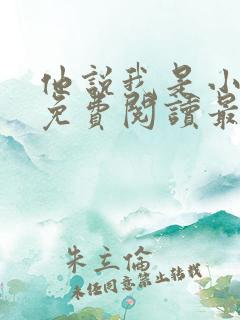 他說我是小
免費閱讀最
朱立倫
未经同意禁止转载